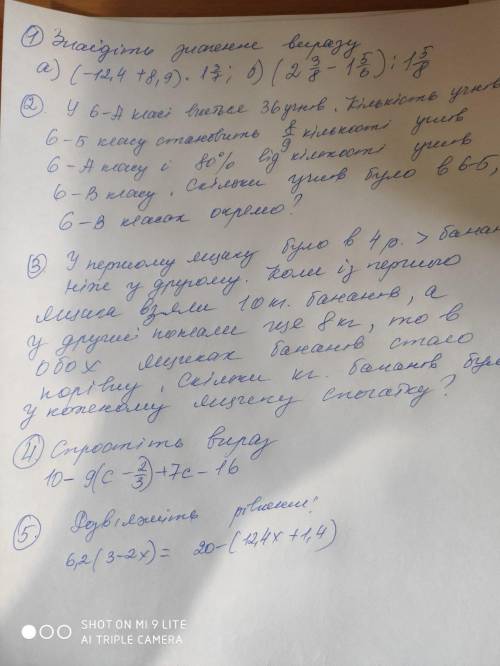 ① Знайдіть значення виразу
а) (-12,4 + 8,9) · 1 3/7 ; б) ( 2 3/8 - 1 5/6 ) : 1 5/8
②. У 6-А класі вчиться 36 учнів. Кількість учнів
6-Б класу становить 8/9 кількості учнів
6-А класу і 80% від кількості учнів
6-В класу. Скільки учнів було в 6-Б,
6-В класах окремо?
③. У першому ящику було в 4 р. > банан
ніж у другому. Коли із першого
ящика взяли 10 кг. бананів, а
у другий поклали ще 8 кг, то в
обох ящиках бананів стало
порівну. Скільки кг. бананів було
у кожному ящику спочатку?
④ Спростіть вираз
10 - 9(с - 2/3) + 7с - 16
⑤. Розвяжіть рівняння!
6,2(3-2х) = 20-(12,4х+1,4)
SHOT ON MI 9 LITE
AI TRIPLE CAMERA